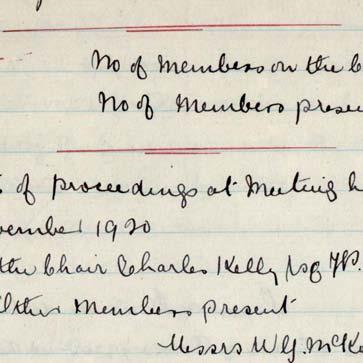 No of Members on the
No of Members presen
of proceedings at Meeting h
vember 1920
the Chair Charles Kelly Esq JP.
Other Members present
Messrs W.G. McKe